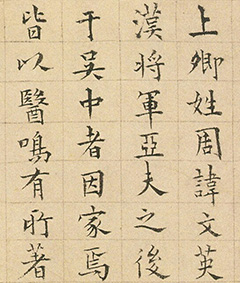 上卿姓周諱文英
漢將軍亞夫之後
于吳中者因家焉
皆以醫鳴有所著